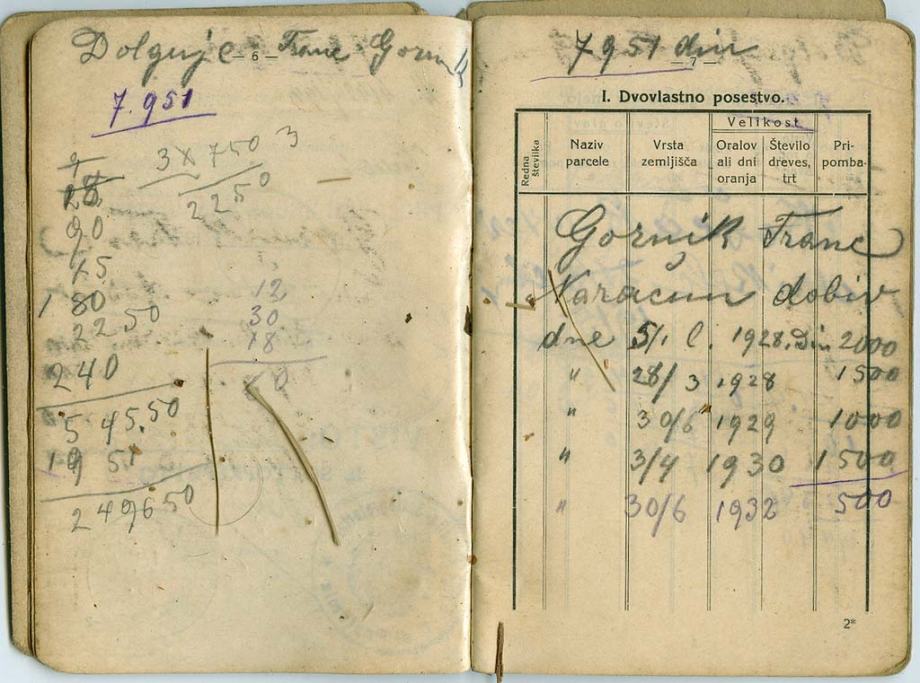 Dolguje Franc Gornik
— 6 —
7.951
3 x 750 3
2250
28
90
15
180
22 50
240
545.50
19 51
2496 50
12
30
18
60
7951 din
— 7 —
I. Dvovlastno posestvo.
Redna številka
Naziv parcele
Vrsta zemljišča
Velikost
Oralov ali dni oranja
Število dreves, trt
Pripomba
Gornik Franc
Naračun dobiv
dne 5/1 l. 1928. Din 2000
" 28/3 1928 1500
" 30/6 1929 1000
" 3/4 1930 1500
" 30/6 1932 500
2*